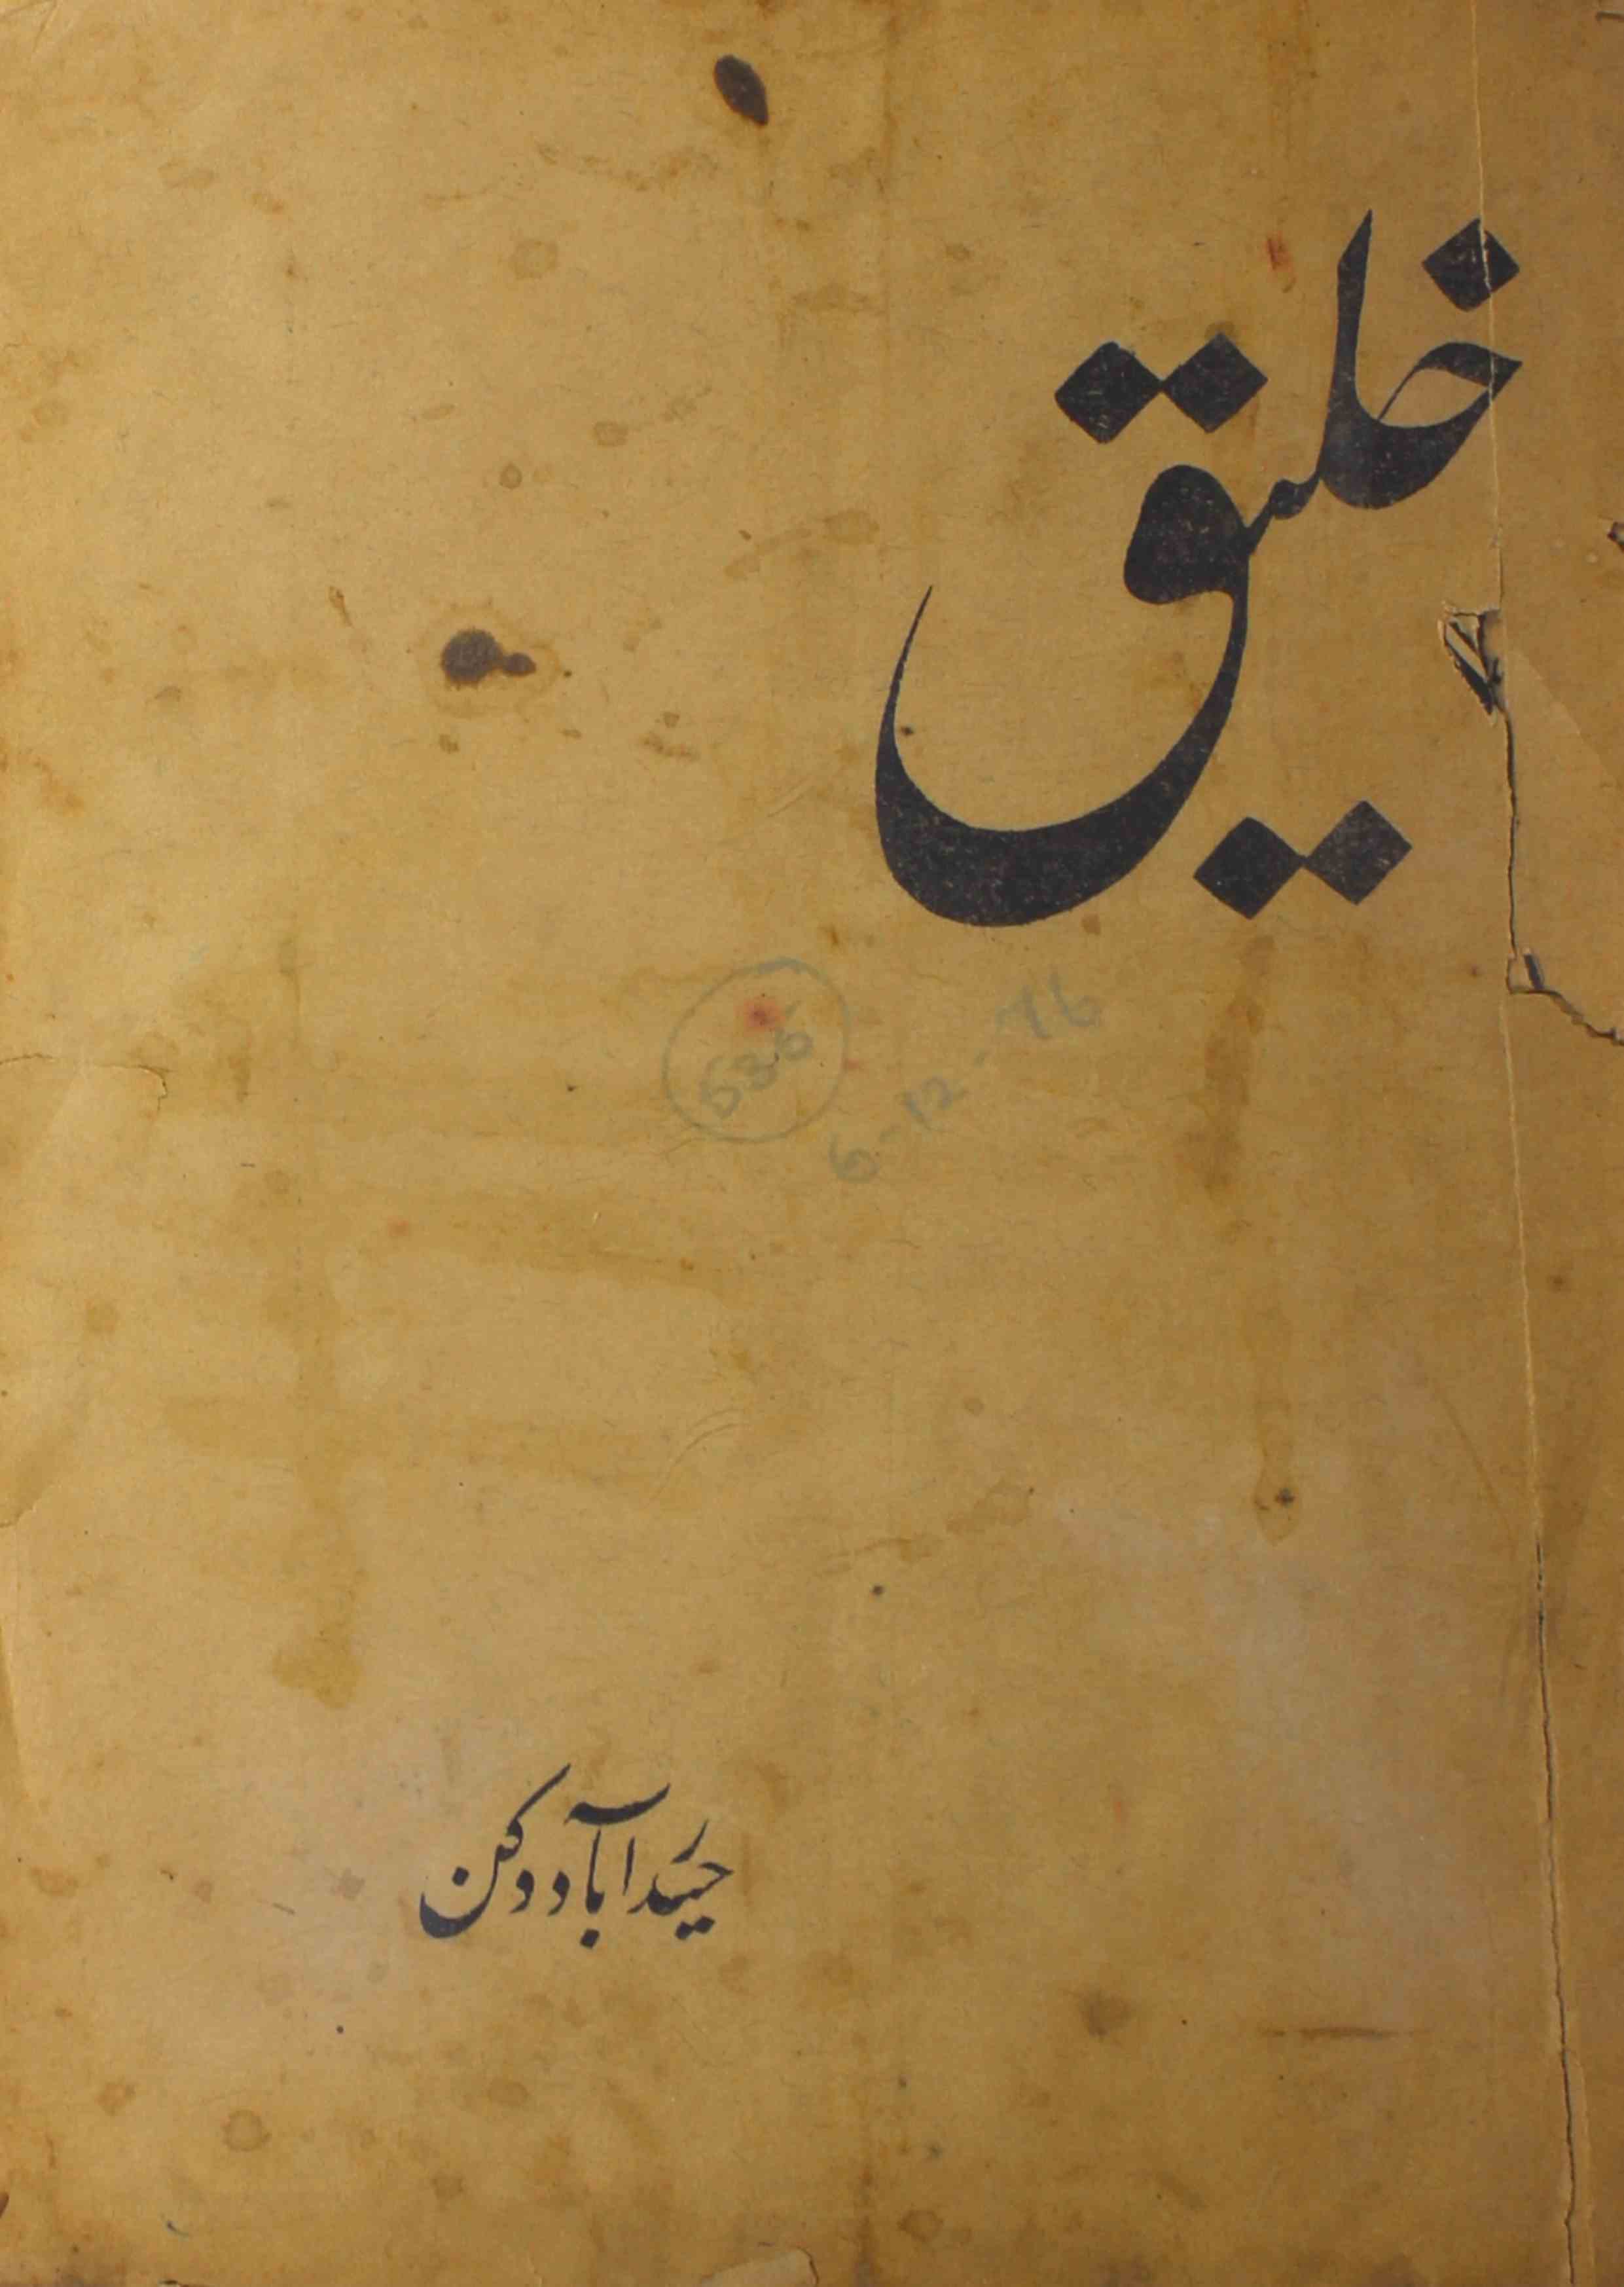 خلیق
536
6-12-76
حیدرآباد دکن